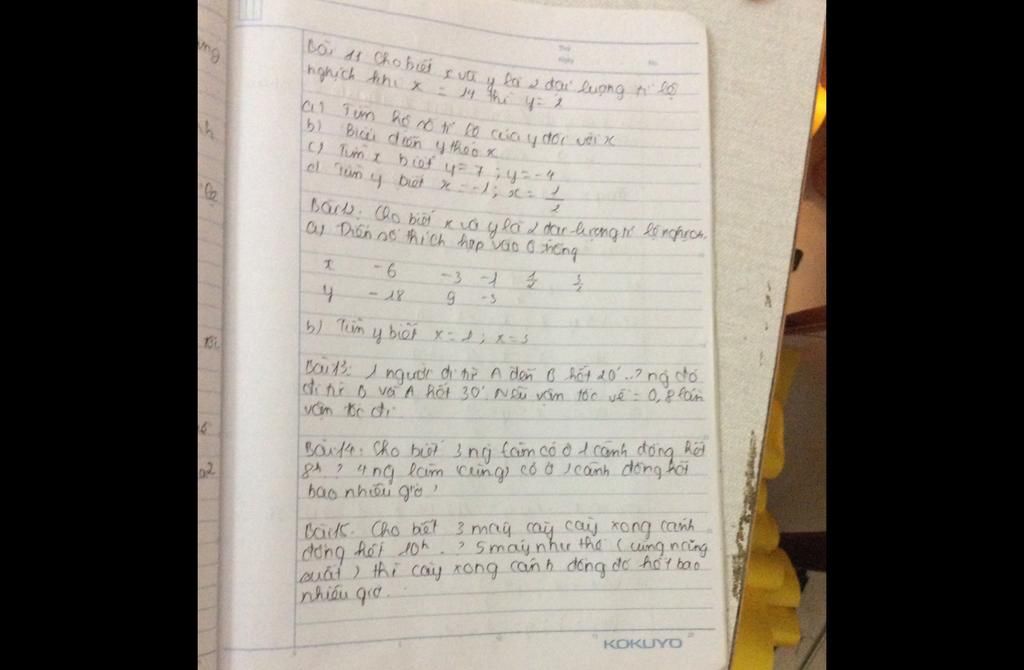 Thứ
Ngày No.
Bài 11 Cho biết x và y là 2 đại lượng tỉ lệ
nghịch khi x = 14 thì y = 2
a) Tìm hệ số tỉ lệ của y đối với x
b) Biểu diễn y theo x
c) Tìm x biết y = 7 ; y = -4
d) Tìm y biết x = -1 ; x = 1/2
Bài 12: Cho biết x và y là 2 đại lượng tỉ lệ nghịch.
a) Điền số thích hợp vào ô trống
x -6 -3 -1 1/2 3/2
y -18 9 -3
b) Tìm y biết x = 1 ; x = 3
Bài 13: 1 người đi từ A đến B hết 20' ..? ng đó
đi từ B về A hết 30' Nếu vận tốc về = 0,8 lần
vận tốc đi
Bài 14: Cho biết 3 ng làm cỏ ở 1 cánh đồng hết
8h ? 4 ng làm (cùng) cỏ ở 1 cánh đồng hết
bao nhiêu giờ ?
Bài 15. Cho biết 3 máy cày cày xong cánh
đồng hết 10h . ? 5 máy như thế (cùng năng
suất) thì cày xong cánh đồng đó hết bao
nhiêu giờ.
KOKUYO